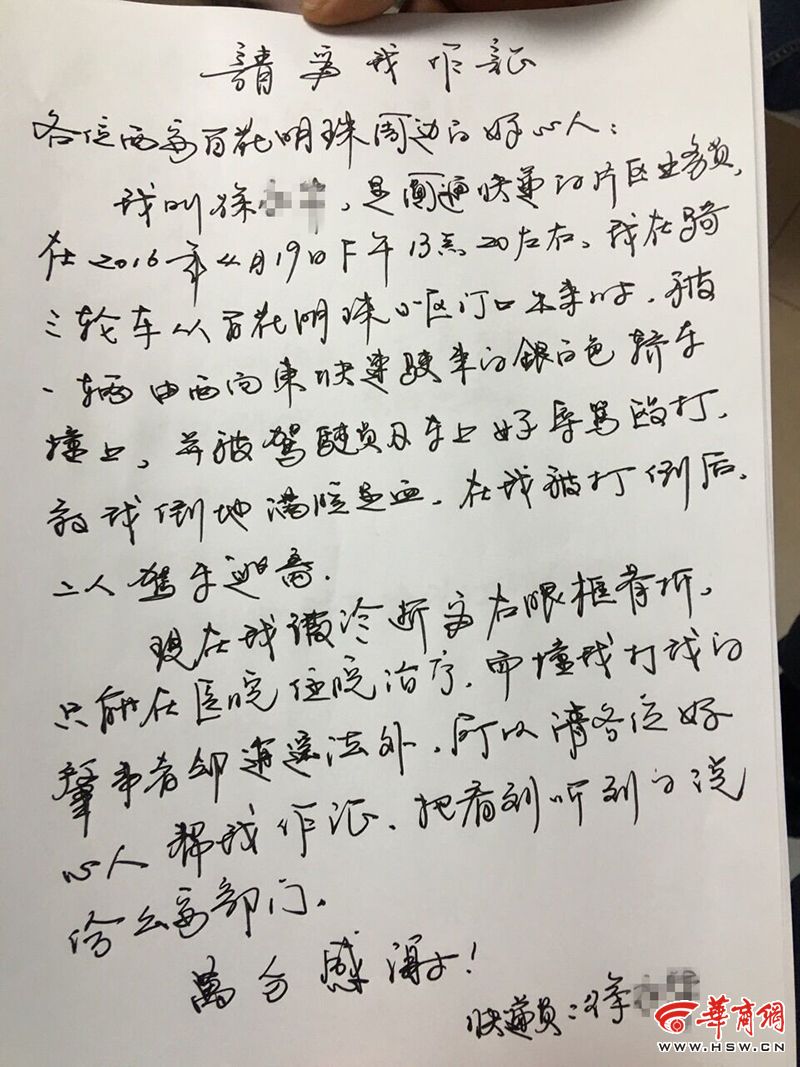 請为我作証
各位西安百花明珠周边的好心人：
我叫徐，是圆通快递的片区业务员，
在2016年4月19日下午13点20左右，我在骑
三轮车从百花明珠小区门口出来时，被
一辆由西向東快速駛来的銀白色轿车
撞上，并被驾駛员及车上好辱骂殴打，
致我倒地满脸是血。在我被打倒后，
二人驾车逃离。
现在我被诊断为右眼框骨折，
只能在医院住院治疗，而撞我打我的
肇事者却逍遥法外，所以请各位好
心人帮我作证，把看到听到的说
给公安部门。
萬分感谢！
快递员：徐
華商網
WWW.HSW.CN